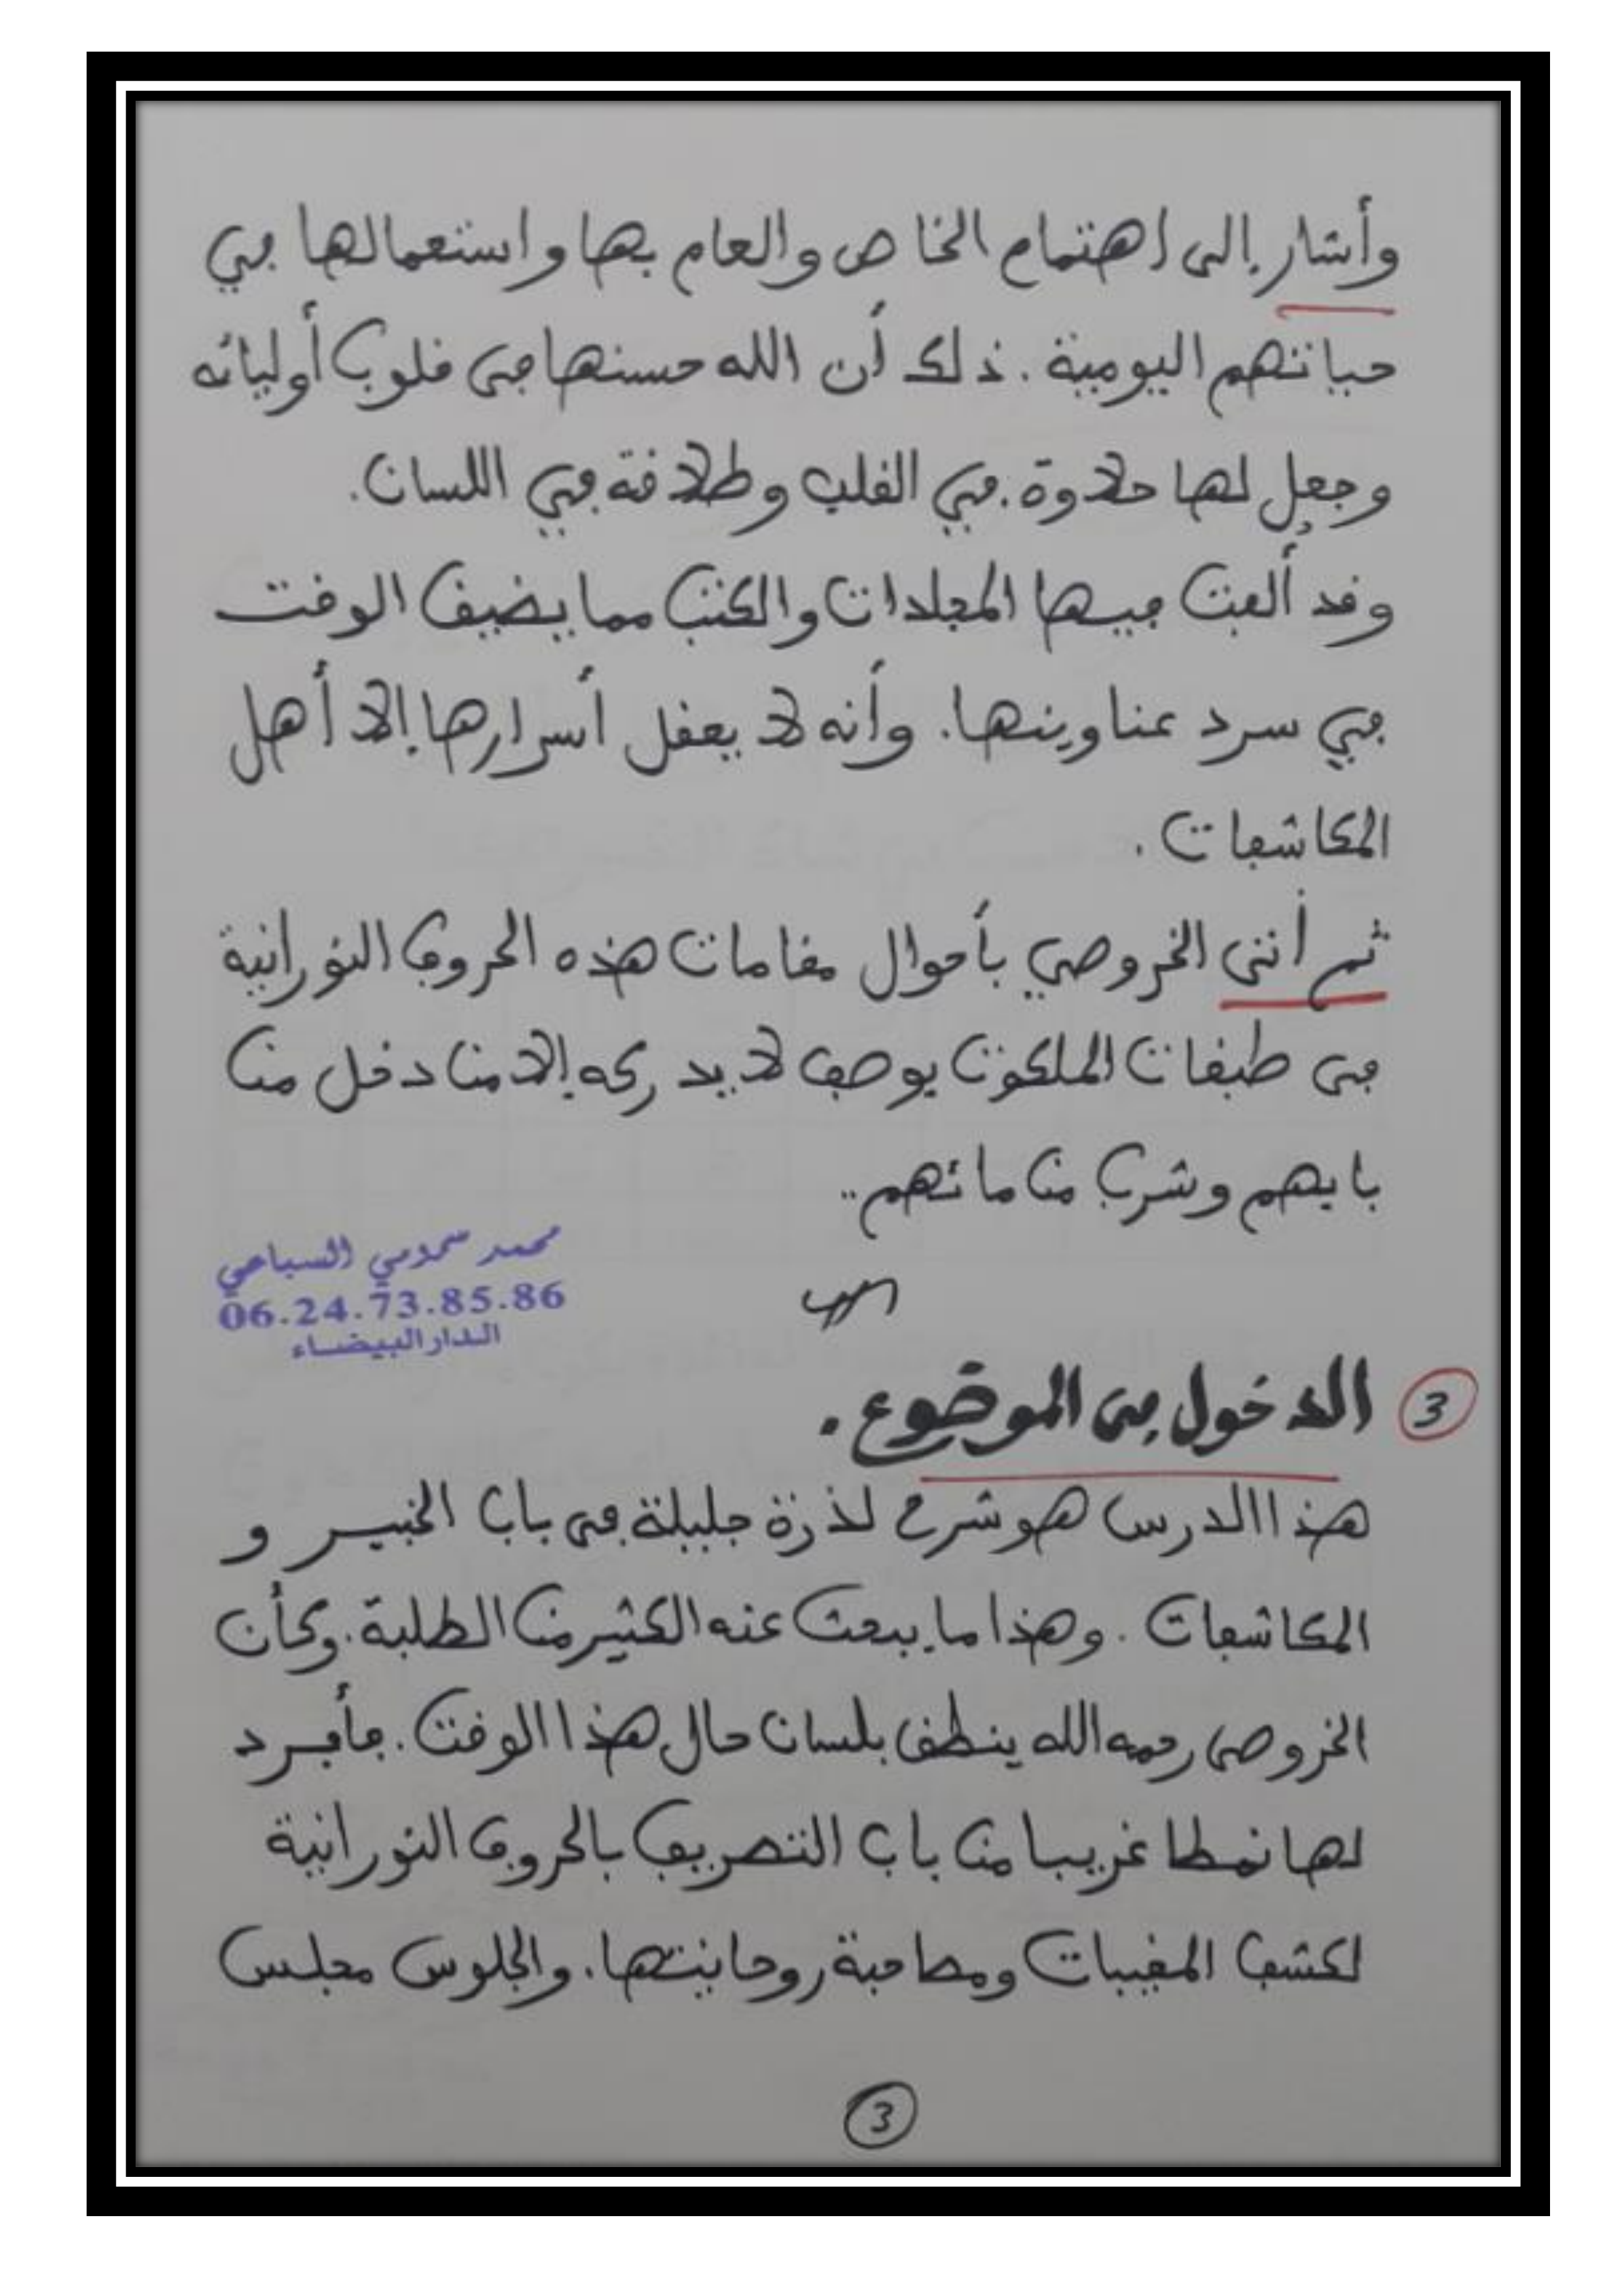 وأشار إلى اهتمام الخاص والعام بها واستعمالها في
حياتهم اليومية. ذلك أن الله حسنها في قلوب أوليائه
وجعل لها حلاوة في القلب وطلاقة في اللسان.
وقد ألفت فيها المجلدات والكتب مما يضيق الوقت
في سرد عناوينها. وأنه لا يعقل أسرارها إلا أهل
المكاشفات.
ثم أتى الخروصي بأحوال مقامات هذه الحروف النورانية
في طبقات الملكوت بوصف لا يدركه إلا من دخل من
بابهم وشرب من مائهم..
محمد سحومي السباعي
06.24.73.85.86
الدار البيضاء
3 الدخول في الموضوع.
هذا الدرس هو شرح لذرة جليلة في باب الخبير و
المكاشفات. وهذا ما يبحث عنه الكثير من الطلبة. وكأن
الخروصي رحمه الله ينطق بلسان حال هذا الوقت. فأفرد
لها نمطا غريبا من باب التصريف بالحروف النورانية
لكشف المغيبات ومصاحبة روحانيتها. والجلوس مجلس
3